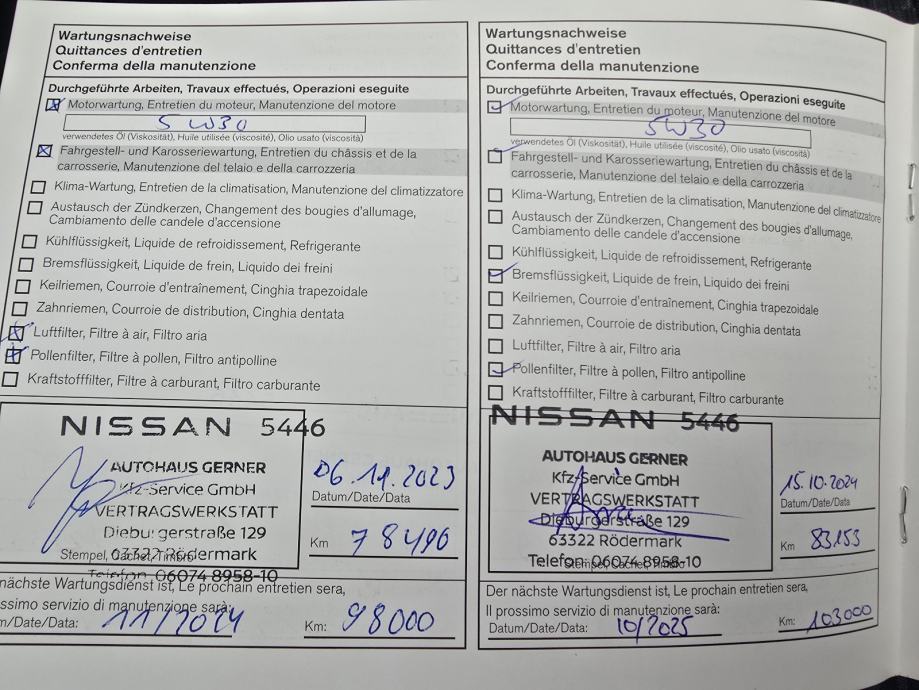 Wartungsnachweise
Quittances d'entretien
Conferma della manutenzione
Durchgeführte Arbeiten, Travaux effectués, Operazioni eseguite
Motorwartung, Entretien du moteur, Manutenzione del motore
5W30
verwendetes Öl (Viskosität), Huile utilisée (viscosité), Olio usato (viscosità)
Fahrgestell- und Karosseriewartung, Entretien du châssis et de la
carrosserie, Manutenzione del telaio e della carrozzeria
Klima-Wartung, Entretien de la climatisation, Manutenzione del climatizzatore
Austausch der Zündkerzen, Changement des bougies d'allumage,
Cambiamento delle candele d'accensione
Kühlflüssigkeit, Liquide de refroidissement, Refrigerante
Bremsflüssigkeit, Liquide de frein, Liquido dei freini
Keilriemen, Courroie d'entraînement, Cinghia trapezoidale
Zahnriemen, Courroie de distribution, Cinghia dentata
Luftfilter, Filtre à air, Filtro aria
Pollenfilter, Filtre à pollen, Filtro antipolline
Kraftstofffilter, Filtre à carburant, Filtro carburante
NISSAN 5446
AUTOHAUS GERNER
Kfz-Service GmbH
VERTRAGSWERKSTATT
Dieburgerstraße 129
63322 Rödermark
Stempel, Cachet, Timbro
Telefon 06074 8958-10
06.11.2023
Datum/Date/Data
Km 78496
nächste Wartungsdienst ist, Le prochain entretien sera,
ssimo servizio di manutenzione sarà:
m/Date/Data: 11/2024 Km: 98000
Wartungsnachweise
Quittances d'entretien
Conferma della manutenzione
Durchgeführte Arbeiten, Travaux effectués, Operazioni eseguite
Motorwartung, Entretien du moteur, Manutenzione del motore
5W30
verwendetes Öl (Viskosität), Huile utilisée (viscosité), Olio usato (viscosità)
Fahrgestell- und Karosseriewartung, Entretien du châssis et de la
carrosserie, Manutenzione del telaio e della carrozzeria
Klima-Wartung, Entretien de la climatisation, Manutenzione del climatizzatore
Austausch der Zündkerzen, Changement des bougies d'allumage,
Cambiamento delle candele d'accensione
Kühlflüssigkeit, Liquide de refroidissement, Refrigerante
Bremsflüssigkeit, Liquide de frein, Liquido dei freini
Keilriemen, Courroie d'entraînement, Cinghia trapezoidale
Zahnriemen, Courroie de distribution, Cinghia dentata
Luftfilter, Filtre à air, Filtro aria
Pollenfilter, Filtre à pollen, Filtro antipolline
Kraftstofffilter, Filtre à carburant, Filtro carburante
NISSAN 5446
AUTOHAUS GERNER
Kfz-Service GmbH
VERTRAGSWERKSTATT
Dieburgerstraße 129
63322 Rödermark
Telefon 06074 8958-10
Stempel, Cachet, Timbro
15.10.2024
Datum/Date/Data
Km 83153
Der nächste Wartungsdienst ist, Le prochain entretien sera,
Il prossimo servizio di manutenzione sarà:
Datum/Date/Data: 10/2025 Km: 103000